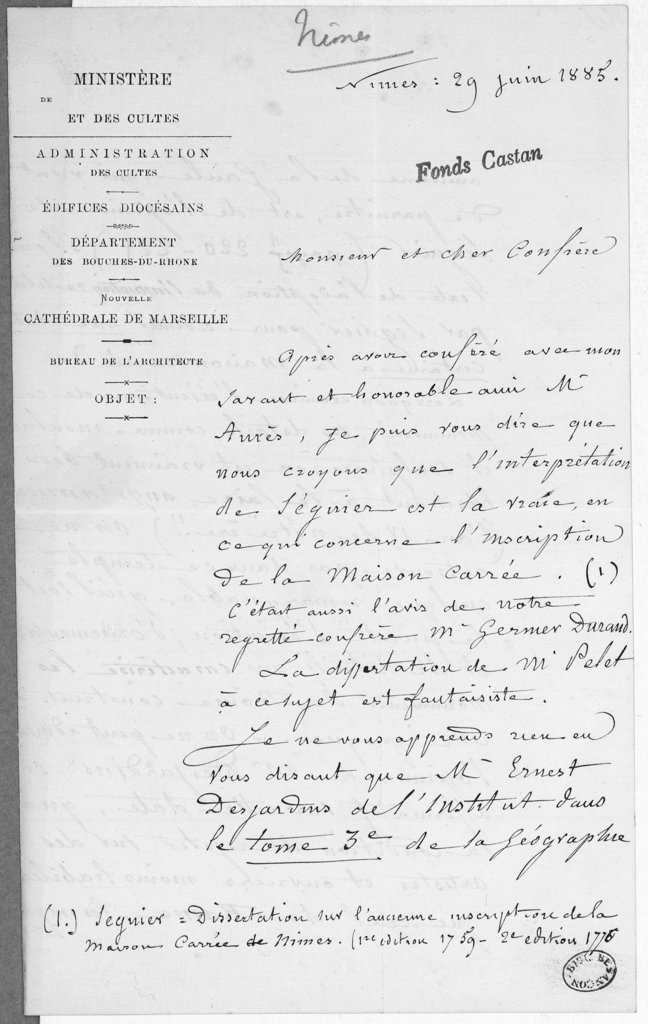 Nimes
MINISTÈRE
DE
ET DES CULTES
ADMINISTRATION
DES CULTES
ÉDIFICES DIOCÉSAINS
DÉPARTEMENT
DES BOUCHES-DU-RHONE
NOUVELLE
CATHÉDRALE DE MARSEILLE
BUREAU DE L'ARCHITECTE
OBJET :
Nimes : 29 juin 1885.
Fonds Castan
Monsieur et cher Confrère
Après avoir conféré avec mon
savant et honorable ami Mr
Aurès, je puis vous dire que
nous croyons que l'interprétation
de Séguier est la vraie, en
ce qui concerne l'inscription
de la Maison Carrée. (1)
C'était aussi l'avis de notre
regretté confrère Mr Germer Durand.
La dissertation de Mr Pelet
à ce sujet est fantaisiste.
Je ne vous apprends rien en
vous disant que Mr Ernest
Desjardins de l'Institut. dans
le tome 3e de sa Géographie
(1.) Seguier = Dissertation sur l'ancienne inscription de la
Maison Carrée de Nimes. (1re edition 1759 - 2e edition 1776
BIBL. BESANÇON